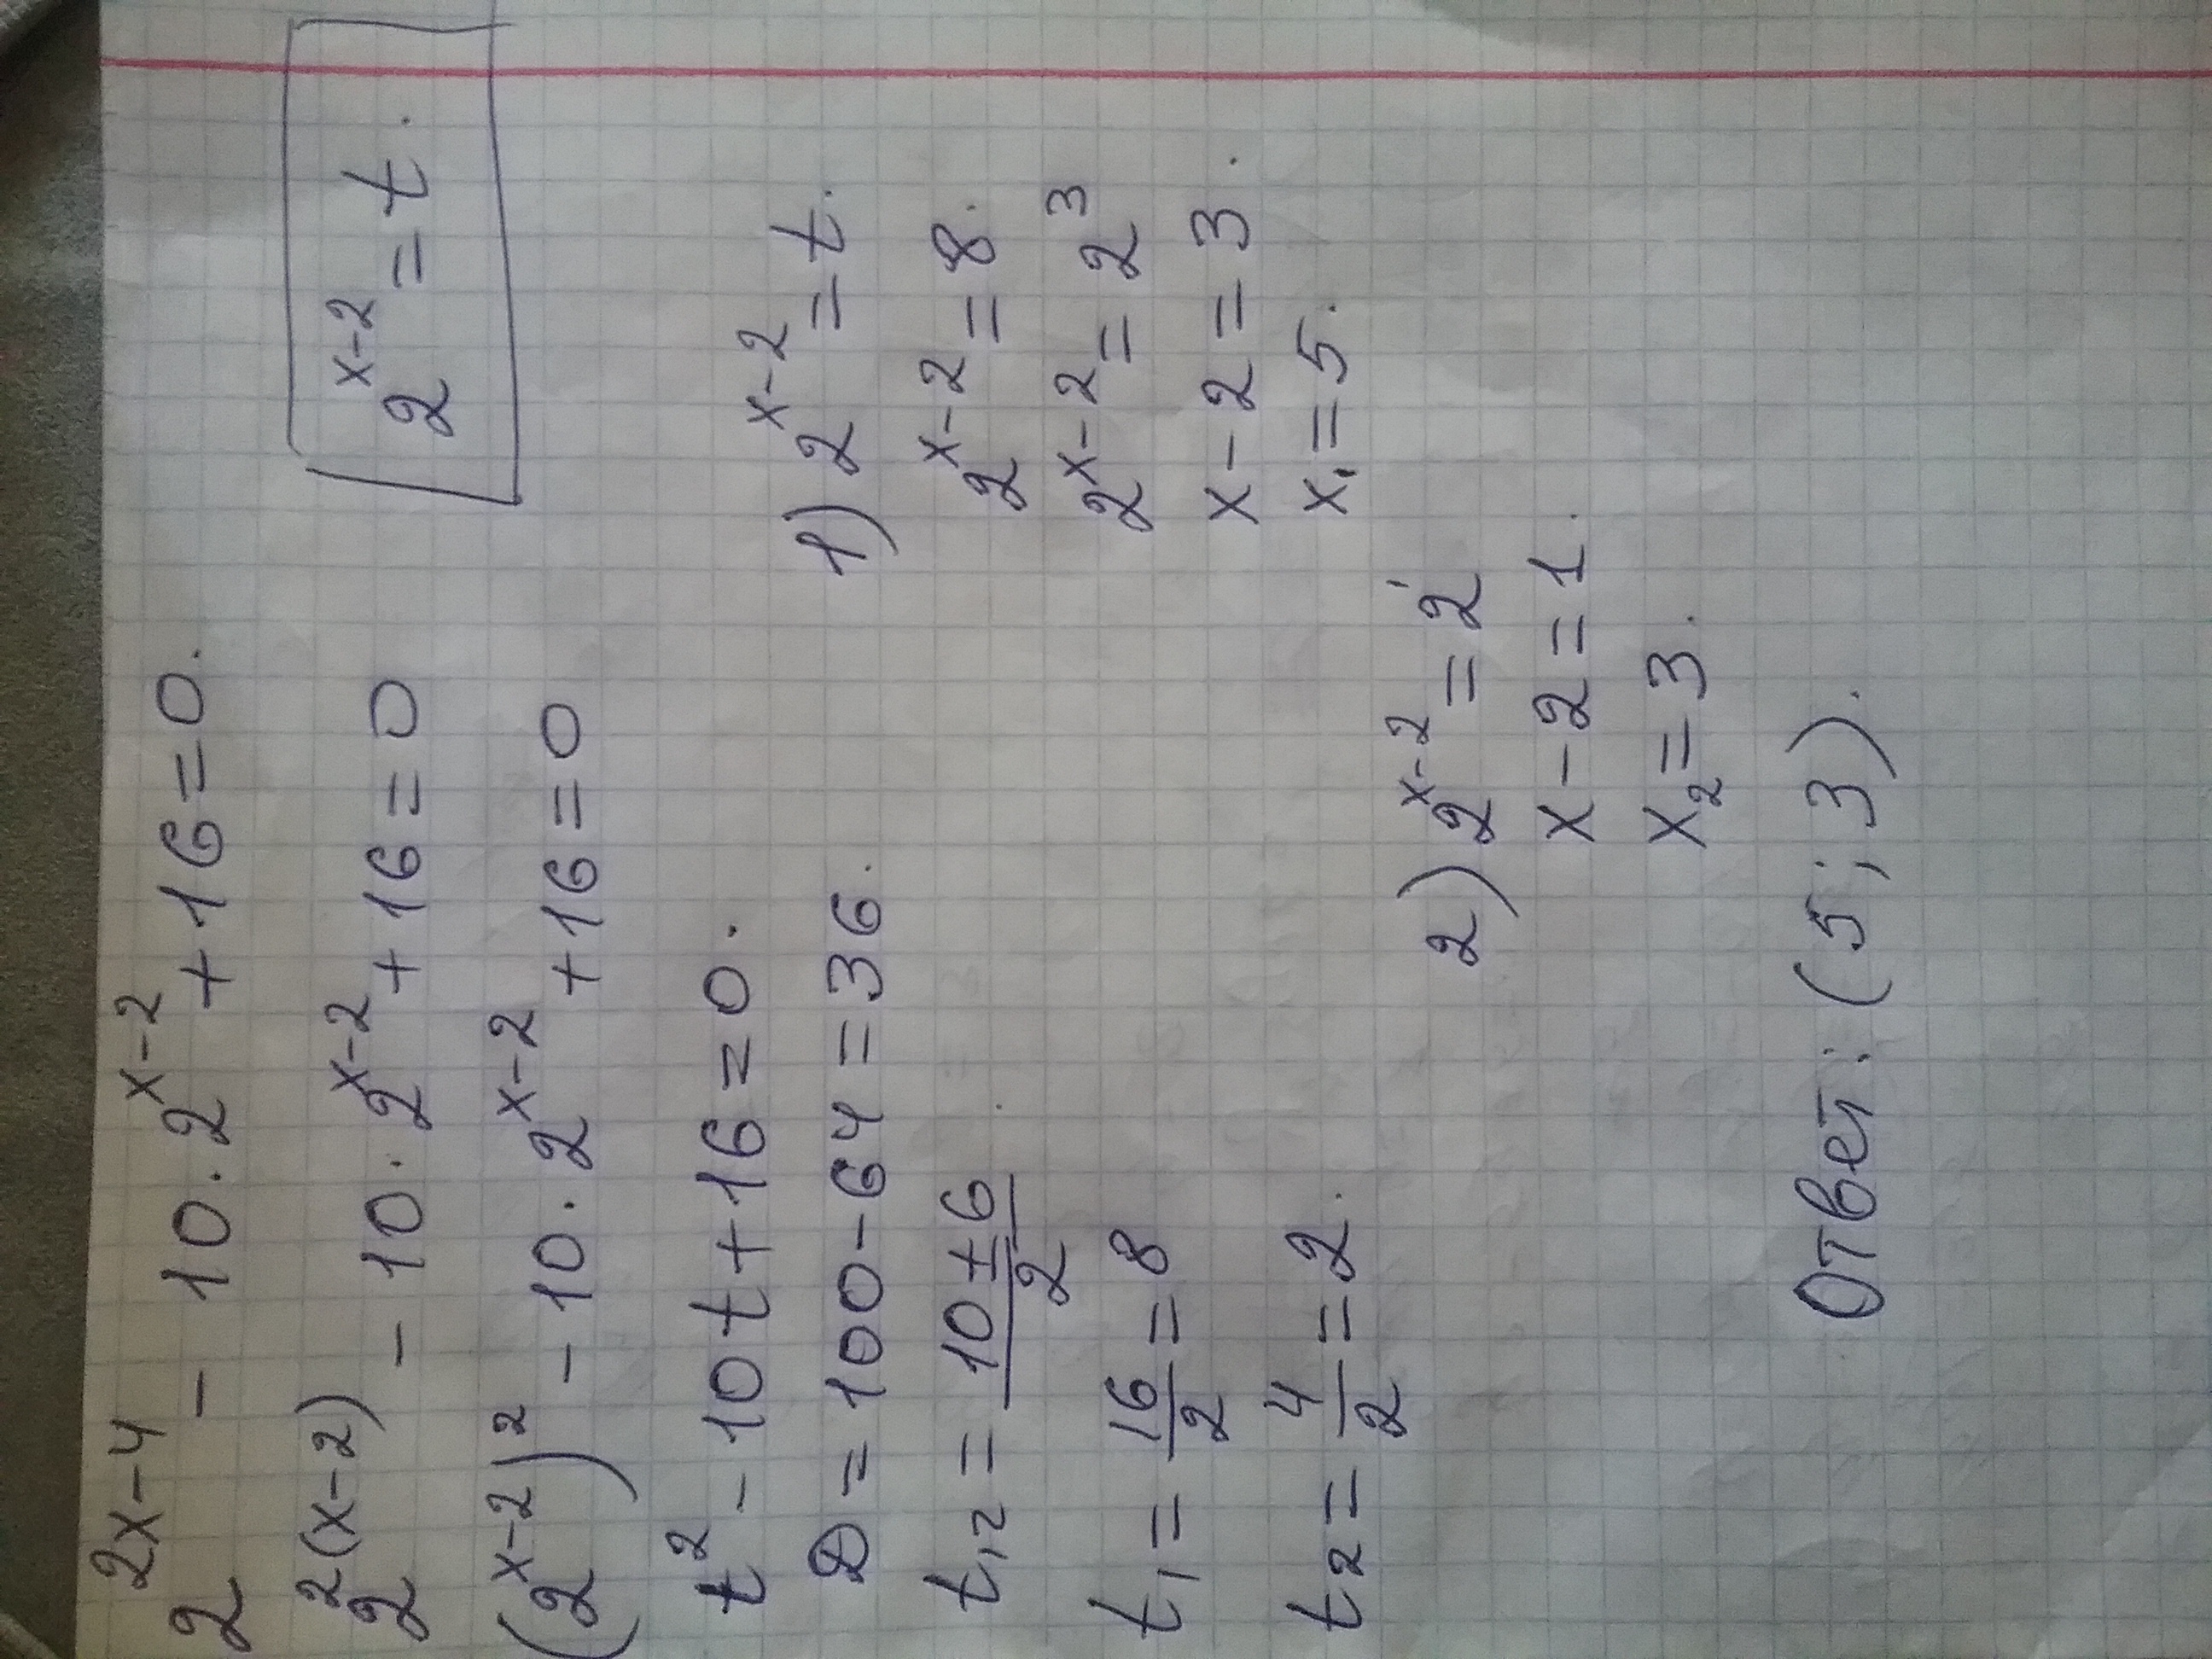 2^{2x-4} - 10 · 2^{x-2} + 16 = 0.
2^{2(x-2)} - 10 · 2^{x-2} + 16 = 0
2^{x-2} = t.
(2^{x-2})^2 - 10 · 2^{x-2} + 16 = 0
t^2 - 10t + 16 = 0.
D = 100 - 64 = 36.
t_{12} = \frac{10 ± 6}{2}
t_1 = \frac{16}{2} = 8
t_2 = \frac{4}{2} = 2.
1) 2^{x-2} = t.
2^{x-2} = 8.
2^{x-2} = 2^3
x - 2 = 3.
x_1 = 5.
2) 2^{x-2} = 2^1
x - 2 = 1.
x_2 = 3.
Ответ: (5; 3).